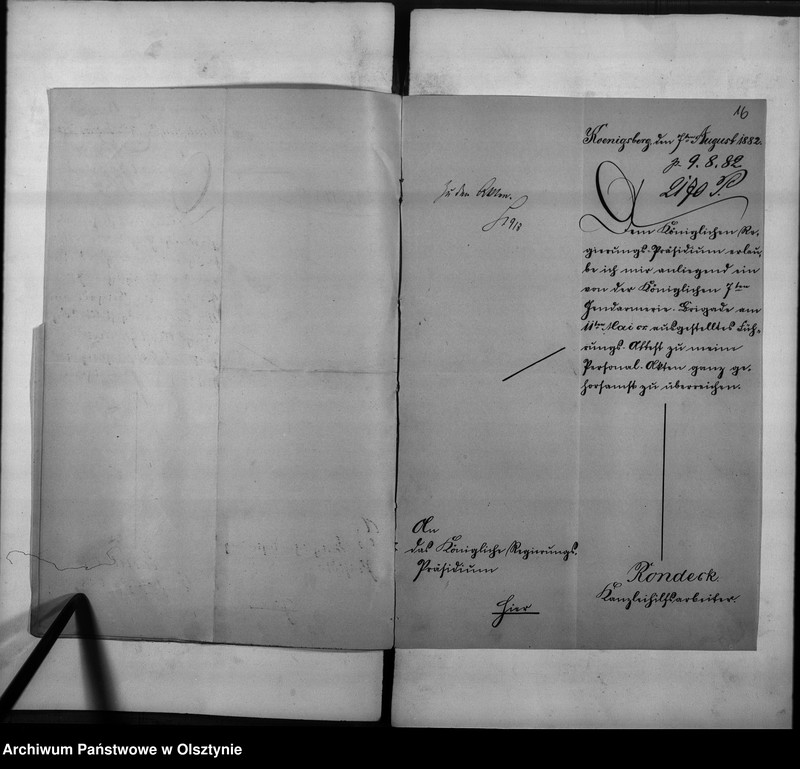 16
Koenigsberg, den 7ten August 1882.
p. 9. 8. 82
2170 P.
Zu den Akten.
9/8
Dem Königlichen Re-
gierungs-Präsidium erlau-
be ich mir anliegend ein
von der Königlichen 7ten
Gendarmerie-Brigade am
11ten Mai cr. ausgestelltes Füh-
rungs-Attest zu meinen
Personal-Akten ganz ge-
horsamst zu überreichen.
An
das Königliche Regierungs-
Präsidium
Hier
Rondeck.
Kanzleihilfsarbeiter.
Archiwum Państwowe w Olsztynie